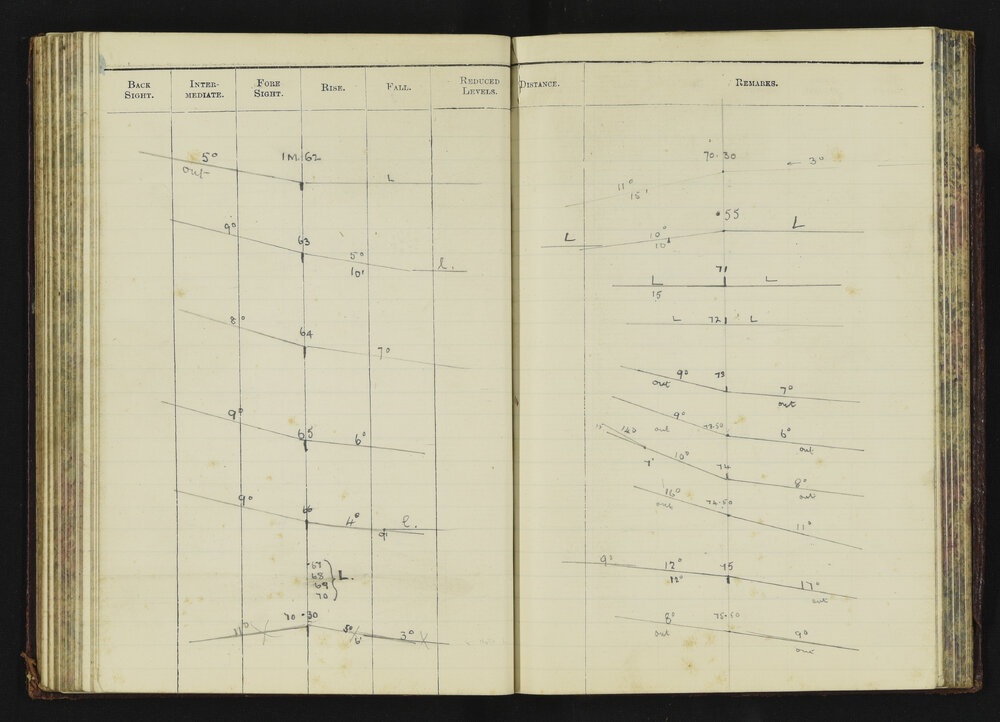 BACK SIGHT. INTER-MEDIATE. FORE SIGHT. RISE. FALL. REDUCED LEVELS.
5° 1M. 62
out L
9° 63 5°
10' l.
8° 64 7°
9° 65 6°
9° 66 4° l.
9'
67
68 L.
69
70
70·30
11° 5° 3°
6'
DISTANCE. REMARKS.
70·30 ← 3°
11°
15'
·55
L 10° L
10'
71
L L
15
L 72 L
9° 73 7°
out out
9° 72.50 6°
out out
15' 140 10° 74 8°
7' out
16° 74.50 11°
out
9° 12° 75 17°
12° out
8° 75.50 9°
out out